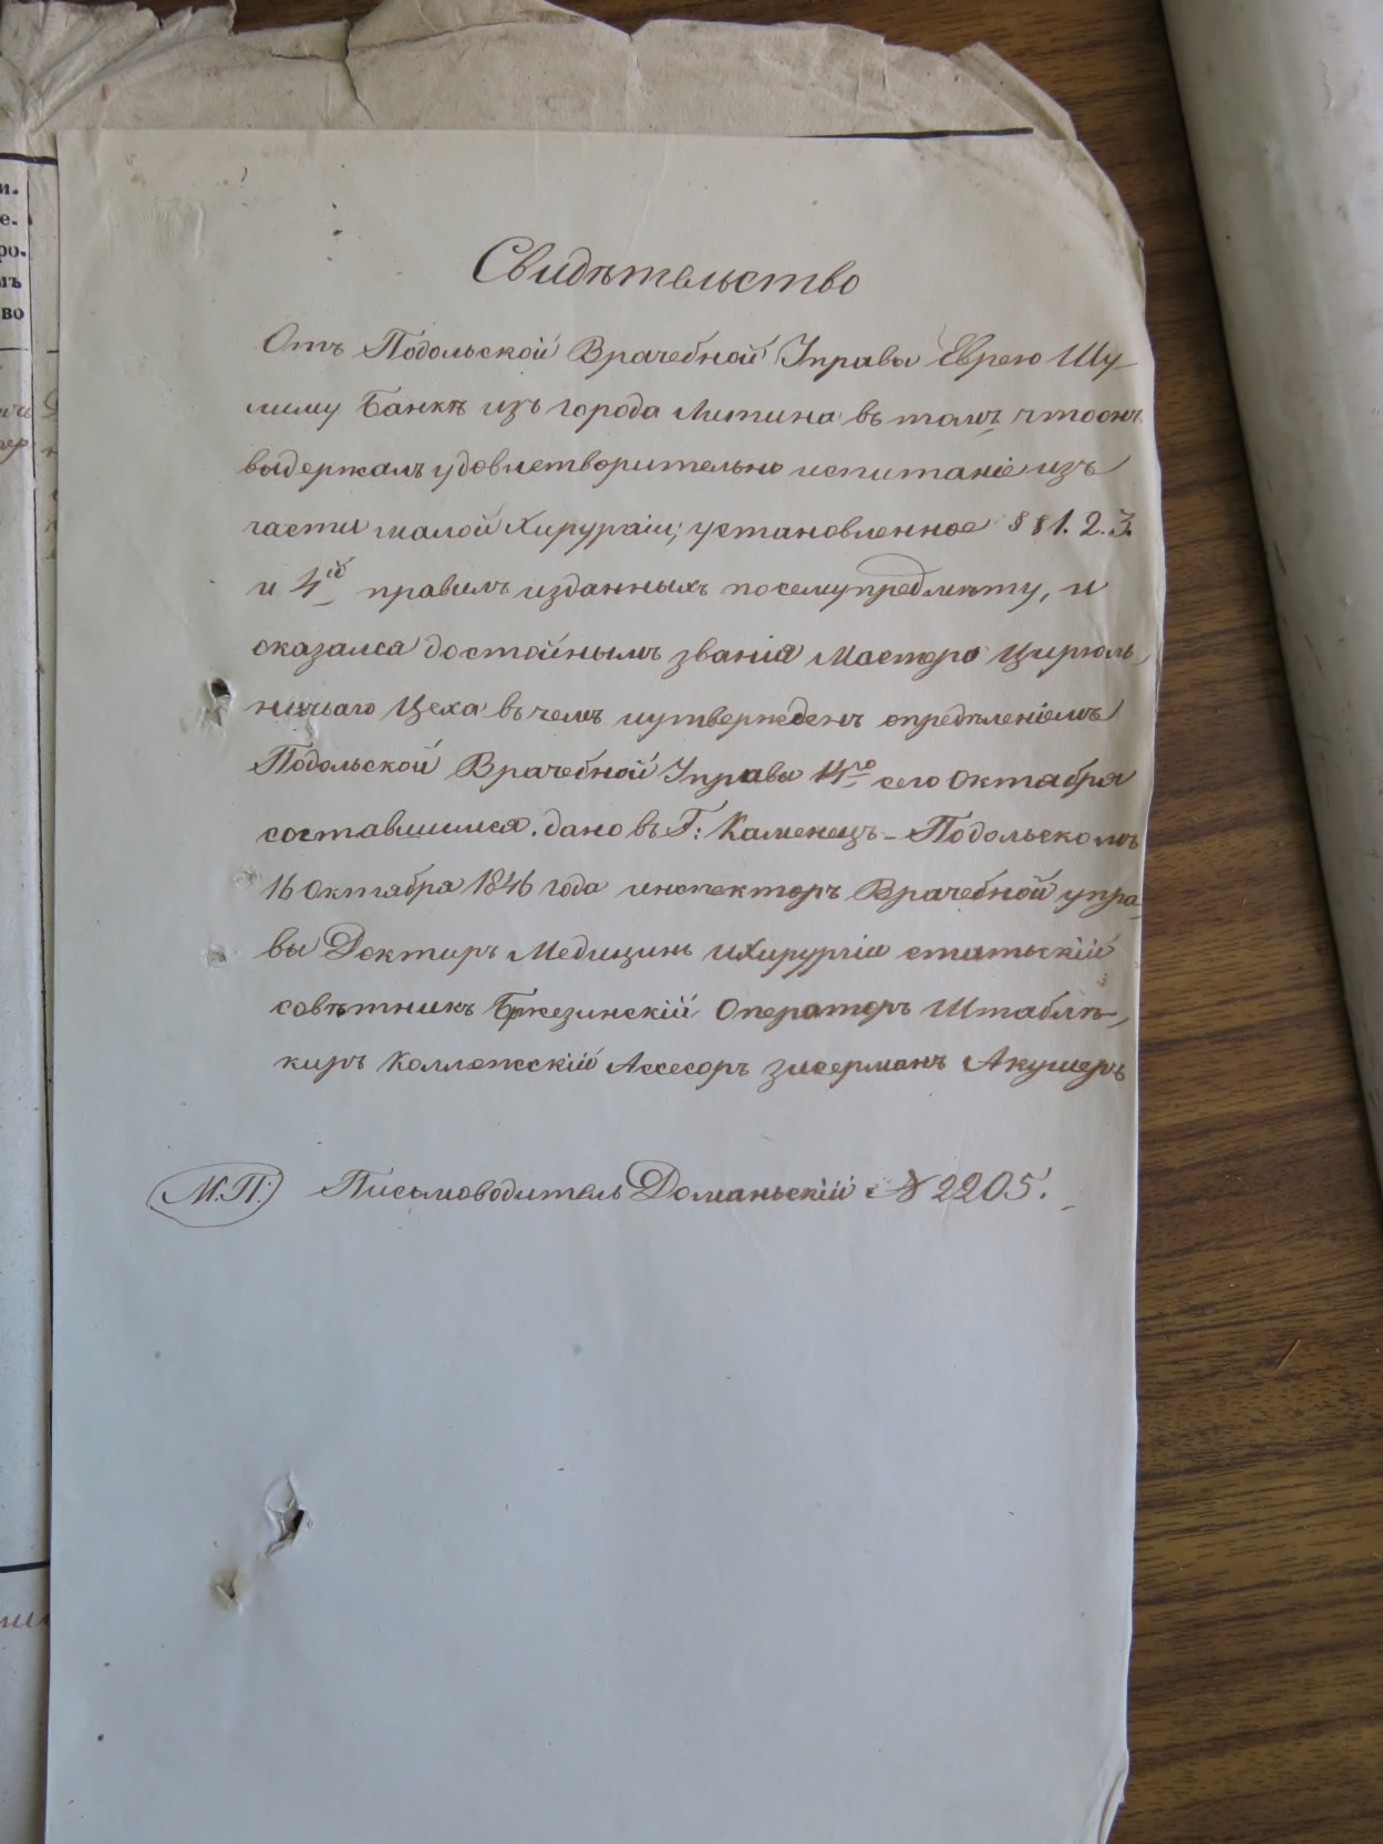 Свидѣтельство
Отъ Подольской Врачебной Управы Еврею Шу-
лиму Банкѣ изъ города Литина въ томъ что онъ
выдержалъ удовлетворительно испитаніе изъ
части малой Хирургіи, установленное §§ 1. 2. 3.
и 4й правилъ изданныхъ по сему предмѣту, и
оказался достойнымъ званія Мастера Цирюль-
ничьаго Цеха въ чемъ и утвержденъ опредѣленіемъ
Подольской Врачебной Управы 14го сего Октября
составшимся. дано въ Г: Каменецъ-Подольскомъ
16 Октября 1846 года инспекторъ Врачебной упра-
вы Докторъ Медицины и Хирургіи статьскій
совѣтникъ Бржезинскій Операторъ Штаблѣ-
киръ Коллежскій Ассесоръ Зисерманъ Акушеръ
М.П: Письмоводитель Доманьскій № 2205.
и.
е.
ро.
мъ
во